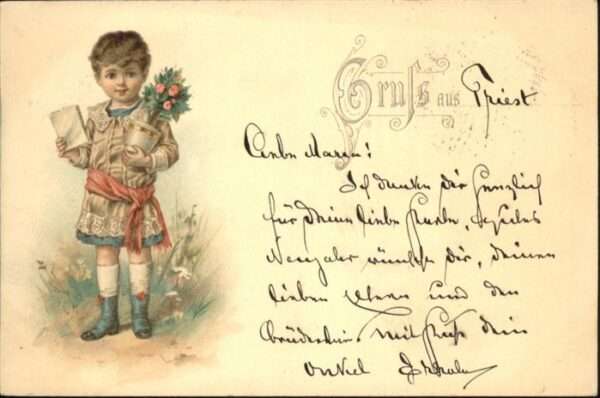 Gruß aus Triest
Liebe Maria!
Ich danke dir herzlich
für deine liebe Karte,
Neujahr wünsche dir, deinen
lieben Eltern und den
Brüderlein. Mit Gruß dein
Onkel